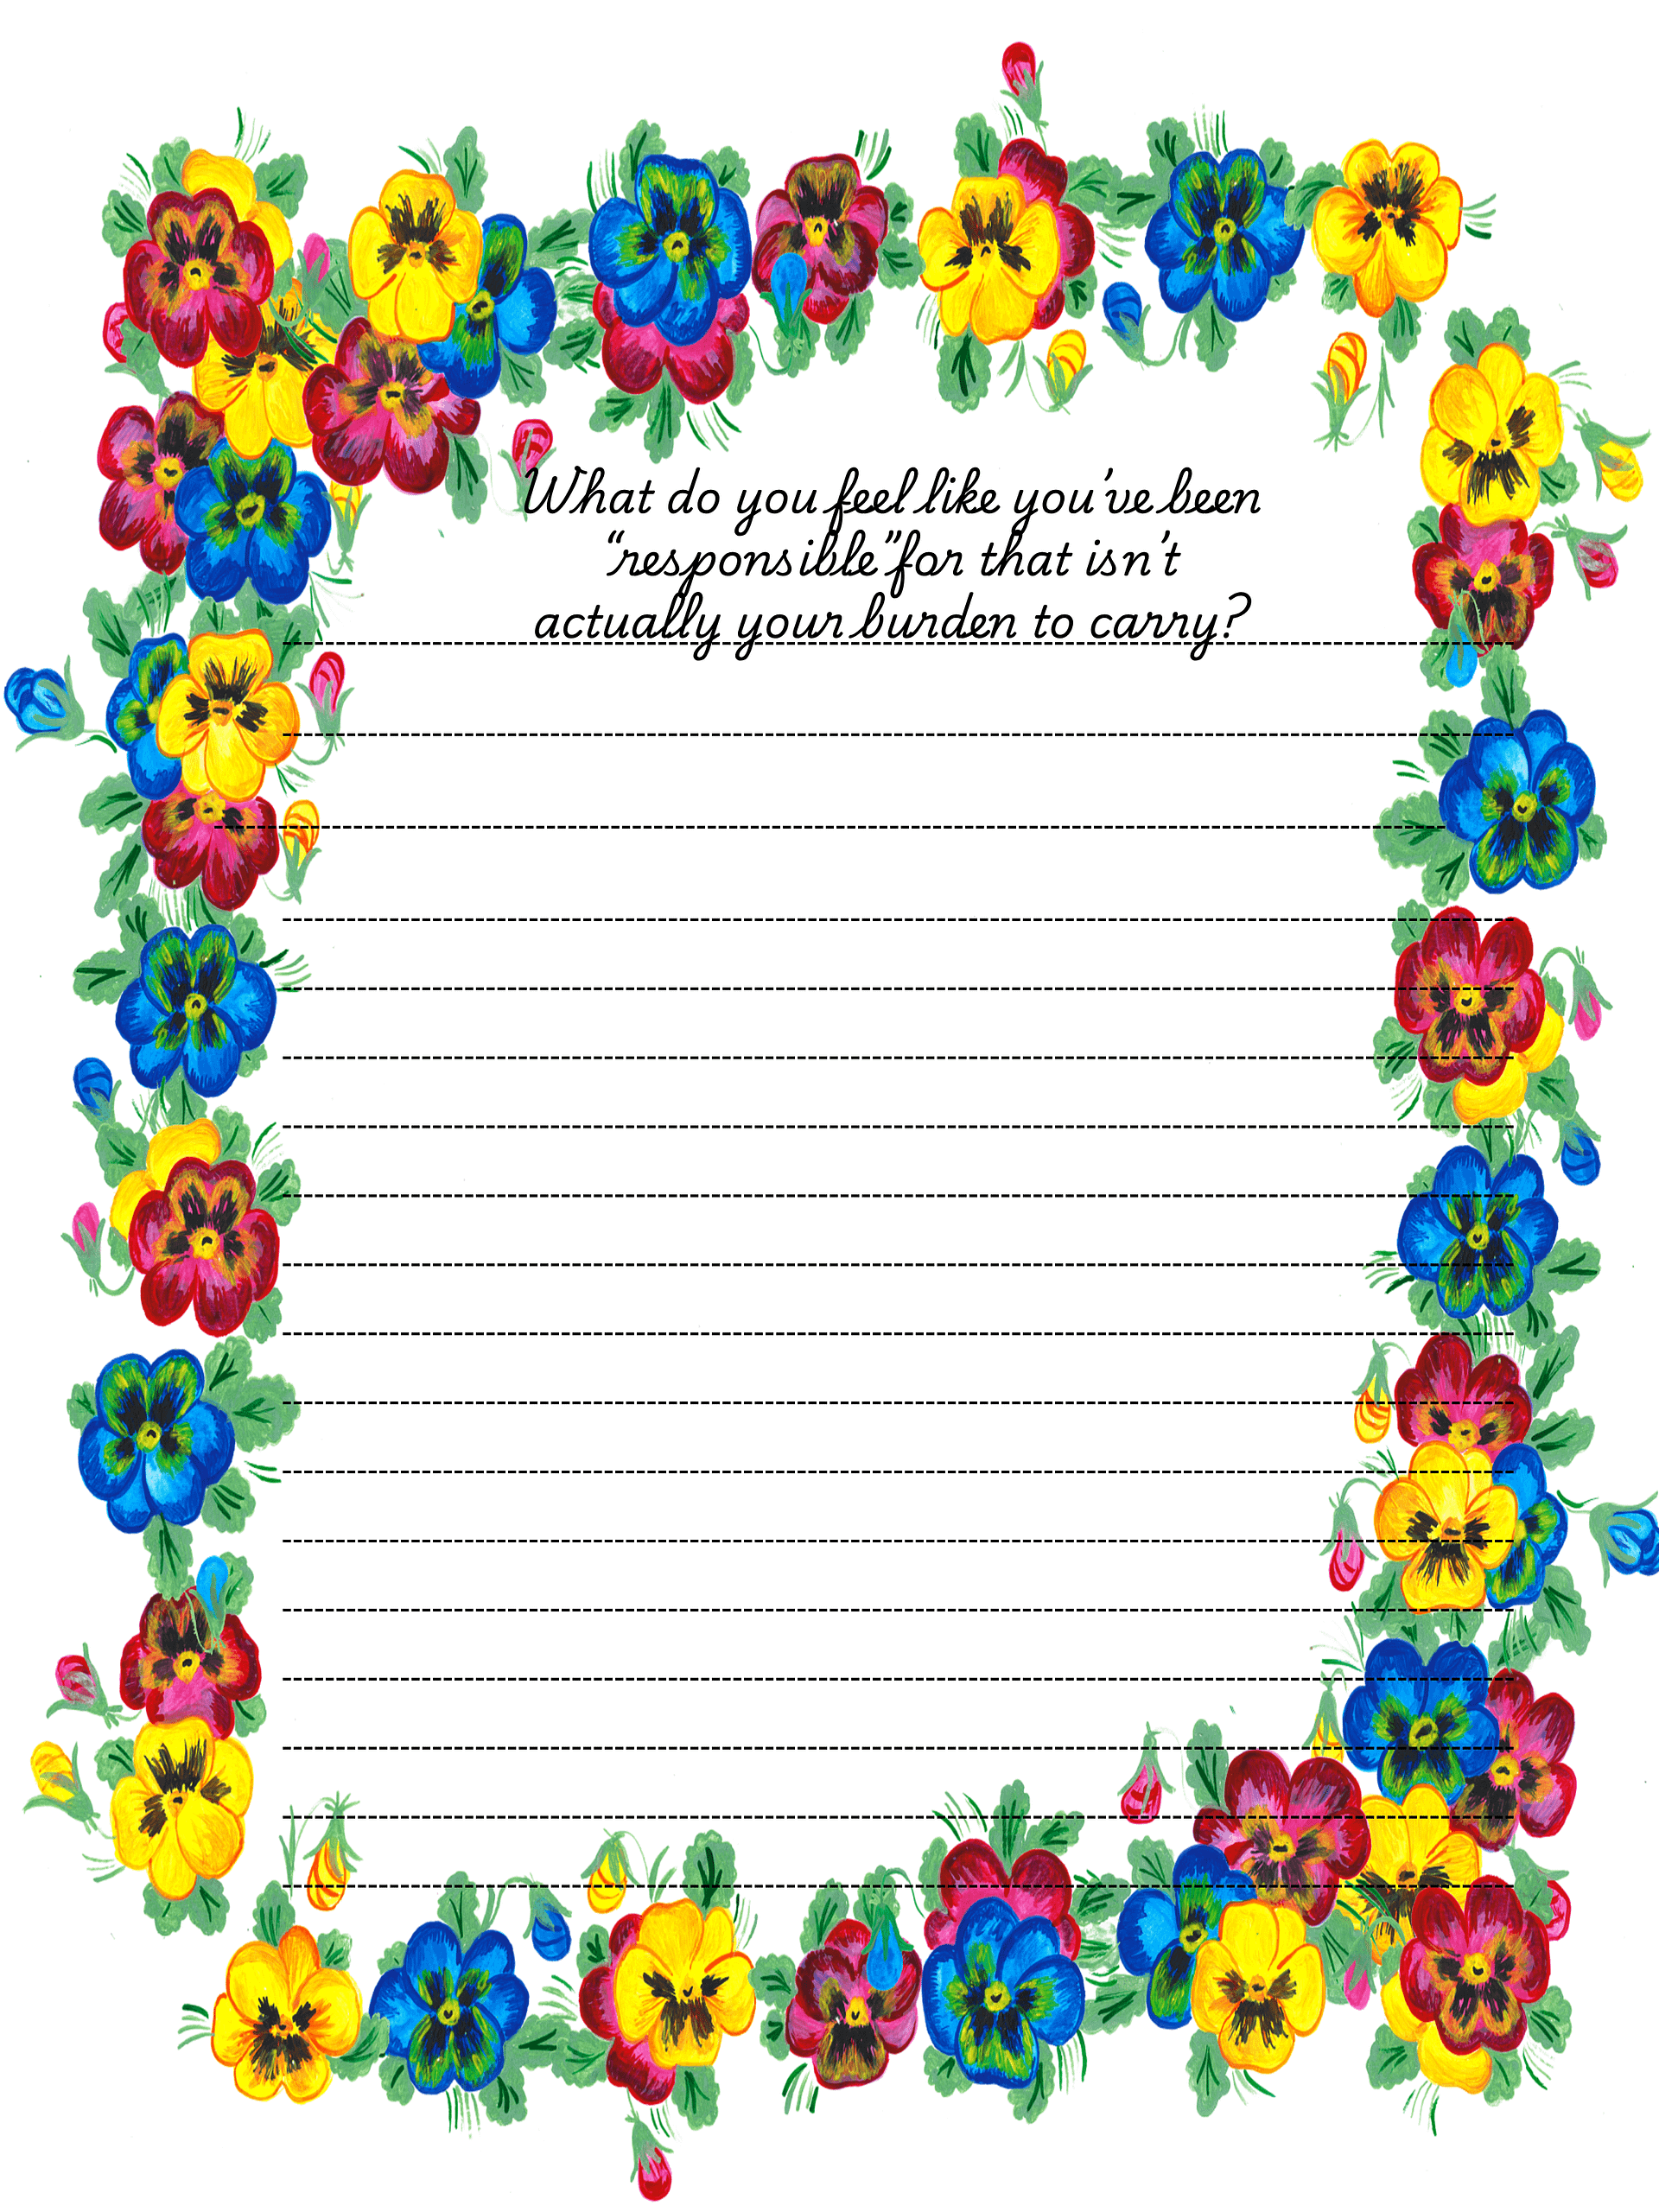 What do you feel like you've been
“responsible” for that isn't
actually your burden to carry?